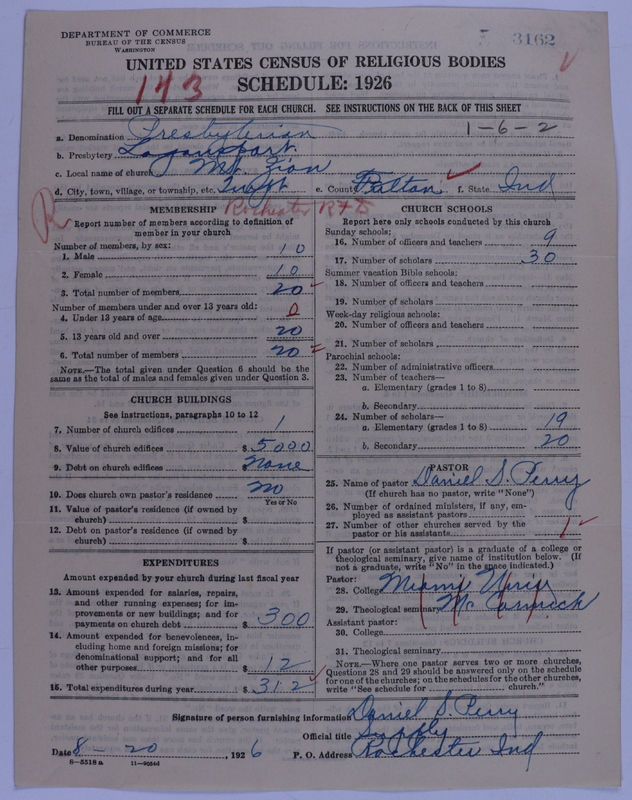 DEPARTMENT OF COMMERCE
BUREAU OF THE CENSUS
WASHINGTON
3162
UNITED STATES CENSUS OF RELIGIOUS BODIES
143
SCHEDULE: 1926
FILL OUT A SEPARATE SCHEDULE FOR EACH CHURCH. SEE INSTRUCTIONS ON THE BACK OF THIS SHEET
1-6-2
a. Denomination Presbyterian
b. Presbytery Logansport.
c. Local name of church Mt. Zion
d. City, town, village, or township, etc. e. County Fulton f. State Ind
Rochester R#5
MEMBERSHIP
Report number of members according to definition of member in your church
Number of members, by sex:
1. Male 10
2. Female 10
3. Total number of members 20
Number of members under and over 13 years old:
4. Under 13 years of age 0
5. 13 years old and over 20
6. Total number of members 20
NOTE.—The total given under Question 6 should be
same as the total of males and females given under Question 3.
CHURCH BUILDINGS
See instructions, paragraphs 10 to 12
7. Number of church edifices 1
8. Value of church edifices $ 5000
9. Debt on church edifices $ None
10. Does church own pastor's residence No
Yes or No
11. Value of pastor's residence (if owned by
church) $
12. Debt on pastor's residence (if owned by
church) $
EXPENDITURES
Amount expended by your church during last fiscal year
13. Amount expended for salaries, repairs,
and other running expenses; for im-
provements or new buildings; and for
payments on church debt $ 300
14. Amount expended for benevolences, in-
cluding home and foreign missions; for
denominational support; and for all
other purposes $ 12
15. Total expenditures during year $ 312
CHURCH SCHOOLS
Report here only schools conducted by this church
Sunday schools:
16. Number of officers and teachers 9
17. Number of scholars 30
Summer vacation Bible schools:
18. Number of officers and teachers
19. Number of scholars
Week-day religious schools:
20. Number of officers and teachers
21. Number of scholars
Parochial schools:
22. Number of administrative officers
23. Number of teachers—
a. Elementary (grades 1 to 8)
b. Secondary
24. Number of scholars—
a. Elementary (grades 1 to 8) 19
b. Secondary 20
PASTOR
25. Name of pastor Daniel S. Perry
(If church has no pastor, write "None")
26. Number of ordained ministers, if any, em-
ployed as assistant pastors
27. Number of other churches served by the
pastor or his assistants 1
If pastor (or assistant pastor) is a graduate of a college or
theological seminary, give name of institution below. (If
not a graduate, write "No" in the space indicated.)
Pastor:
28. College Miami Univ
29. Theological seminary McCormick
Assistant pastor:
30. College
31. Theological seminary
NOTE.—Where one pastor serves two or more churches,
Questions 28 and 29 should be answered only on the schedule
for one of the churches; on the schedules for the other churches,
write "See schedule for church."
Signature of person furnishing information Daniel S. Perry
Official title Supply
Date 8-20, 1926 P. O. Address Rochester Ind
8-5518 a